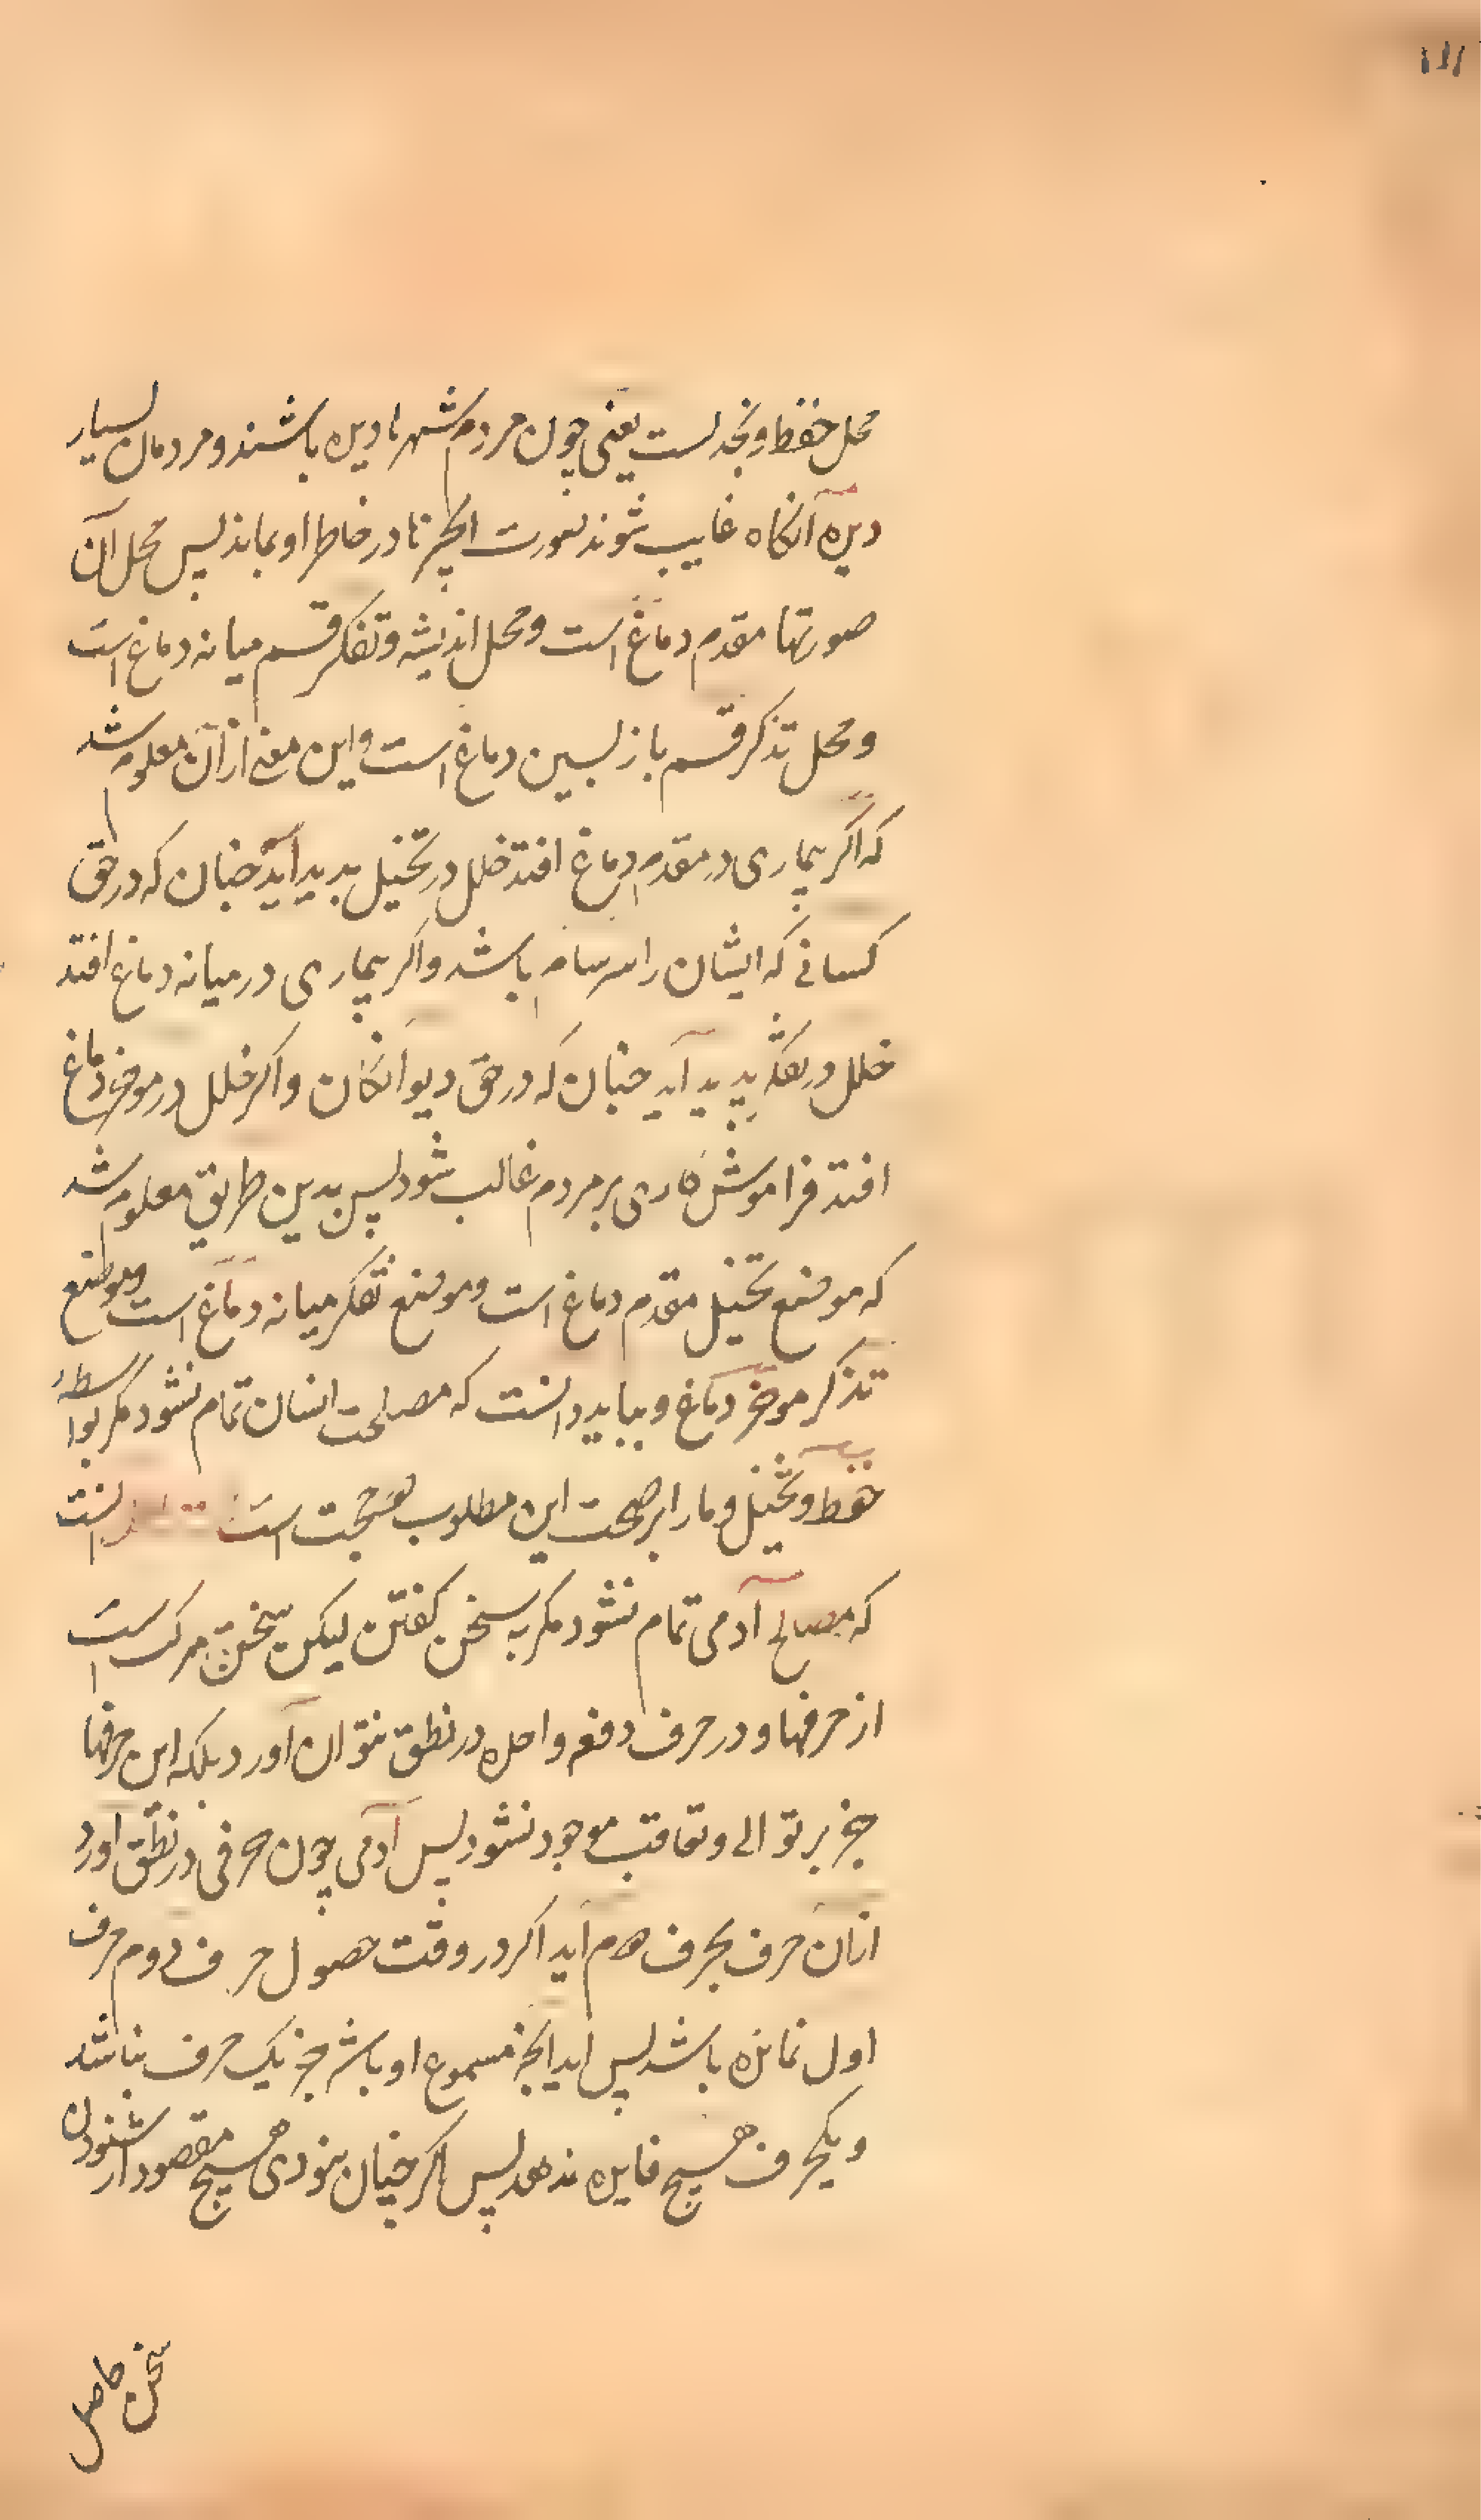 ۱۱۱
محل حفظ و تخیلست یعنی چون مردم شهرها دیده باشند و مردمان بسیار
دیده آنکاه غایب شوند صورت آن چیزها در خاطر او بماند پس محل آن
صورتها مقدم دماغ است و محل اندیشه و تفکر قسم میانه دماغ است
و محل تذکر قسم بازپسین دماغ است و این معنی از آن معلوم شد
که اکر بیماری در مقدم دماغ افتد خلل در تخیل بدید آید چنان که در حق
کسانی که ایشان را سرسام باشد و اکر بیماری در میانه دماغ افتد
خلل در تفکر پدید آید چنان که در حق دیوانکان و اکر خلل در موخر دماغ
افتد فراموش کاری بر مردم غالب شود پس بدین طریق معلوم شد
که موضع تخیل مقدم دماغ است و موضع تفکر میانه دماغ است و موضع
تذکر موخر دماغ و بباید دانست که مصلحت انسان تمام نشود مکر بواسطه
حفظ و تخیل و ما را بر صحت این مطلوب حجت است انست
که مصالح آدمی تمام نشود مکر به سخن کفتن لیکن سخن مرکب است
از حرفها و در حرف دفعه واحده در نطق نتوان آورد بلکه این حرفها
جز بر توالی و تعاقب موجود نشود پس آدمی چون حرفی در نطق آورد
از آن حرف بحرف دوم آید اکر در وقت حصول حرف دوم حرف
اول نمانده باشد پس مسموع او باشد جز یک حرف نباشد
و یکحرف هیچ فایده ندهد پس اکر چنان بودی هیچ مقصود از شنودن
سخن حاصل